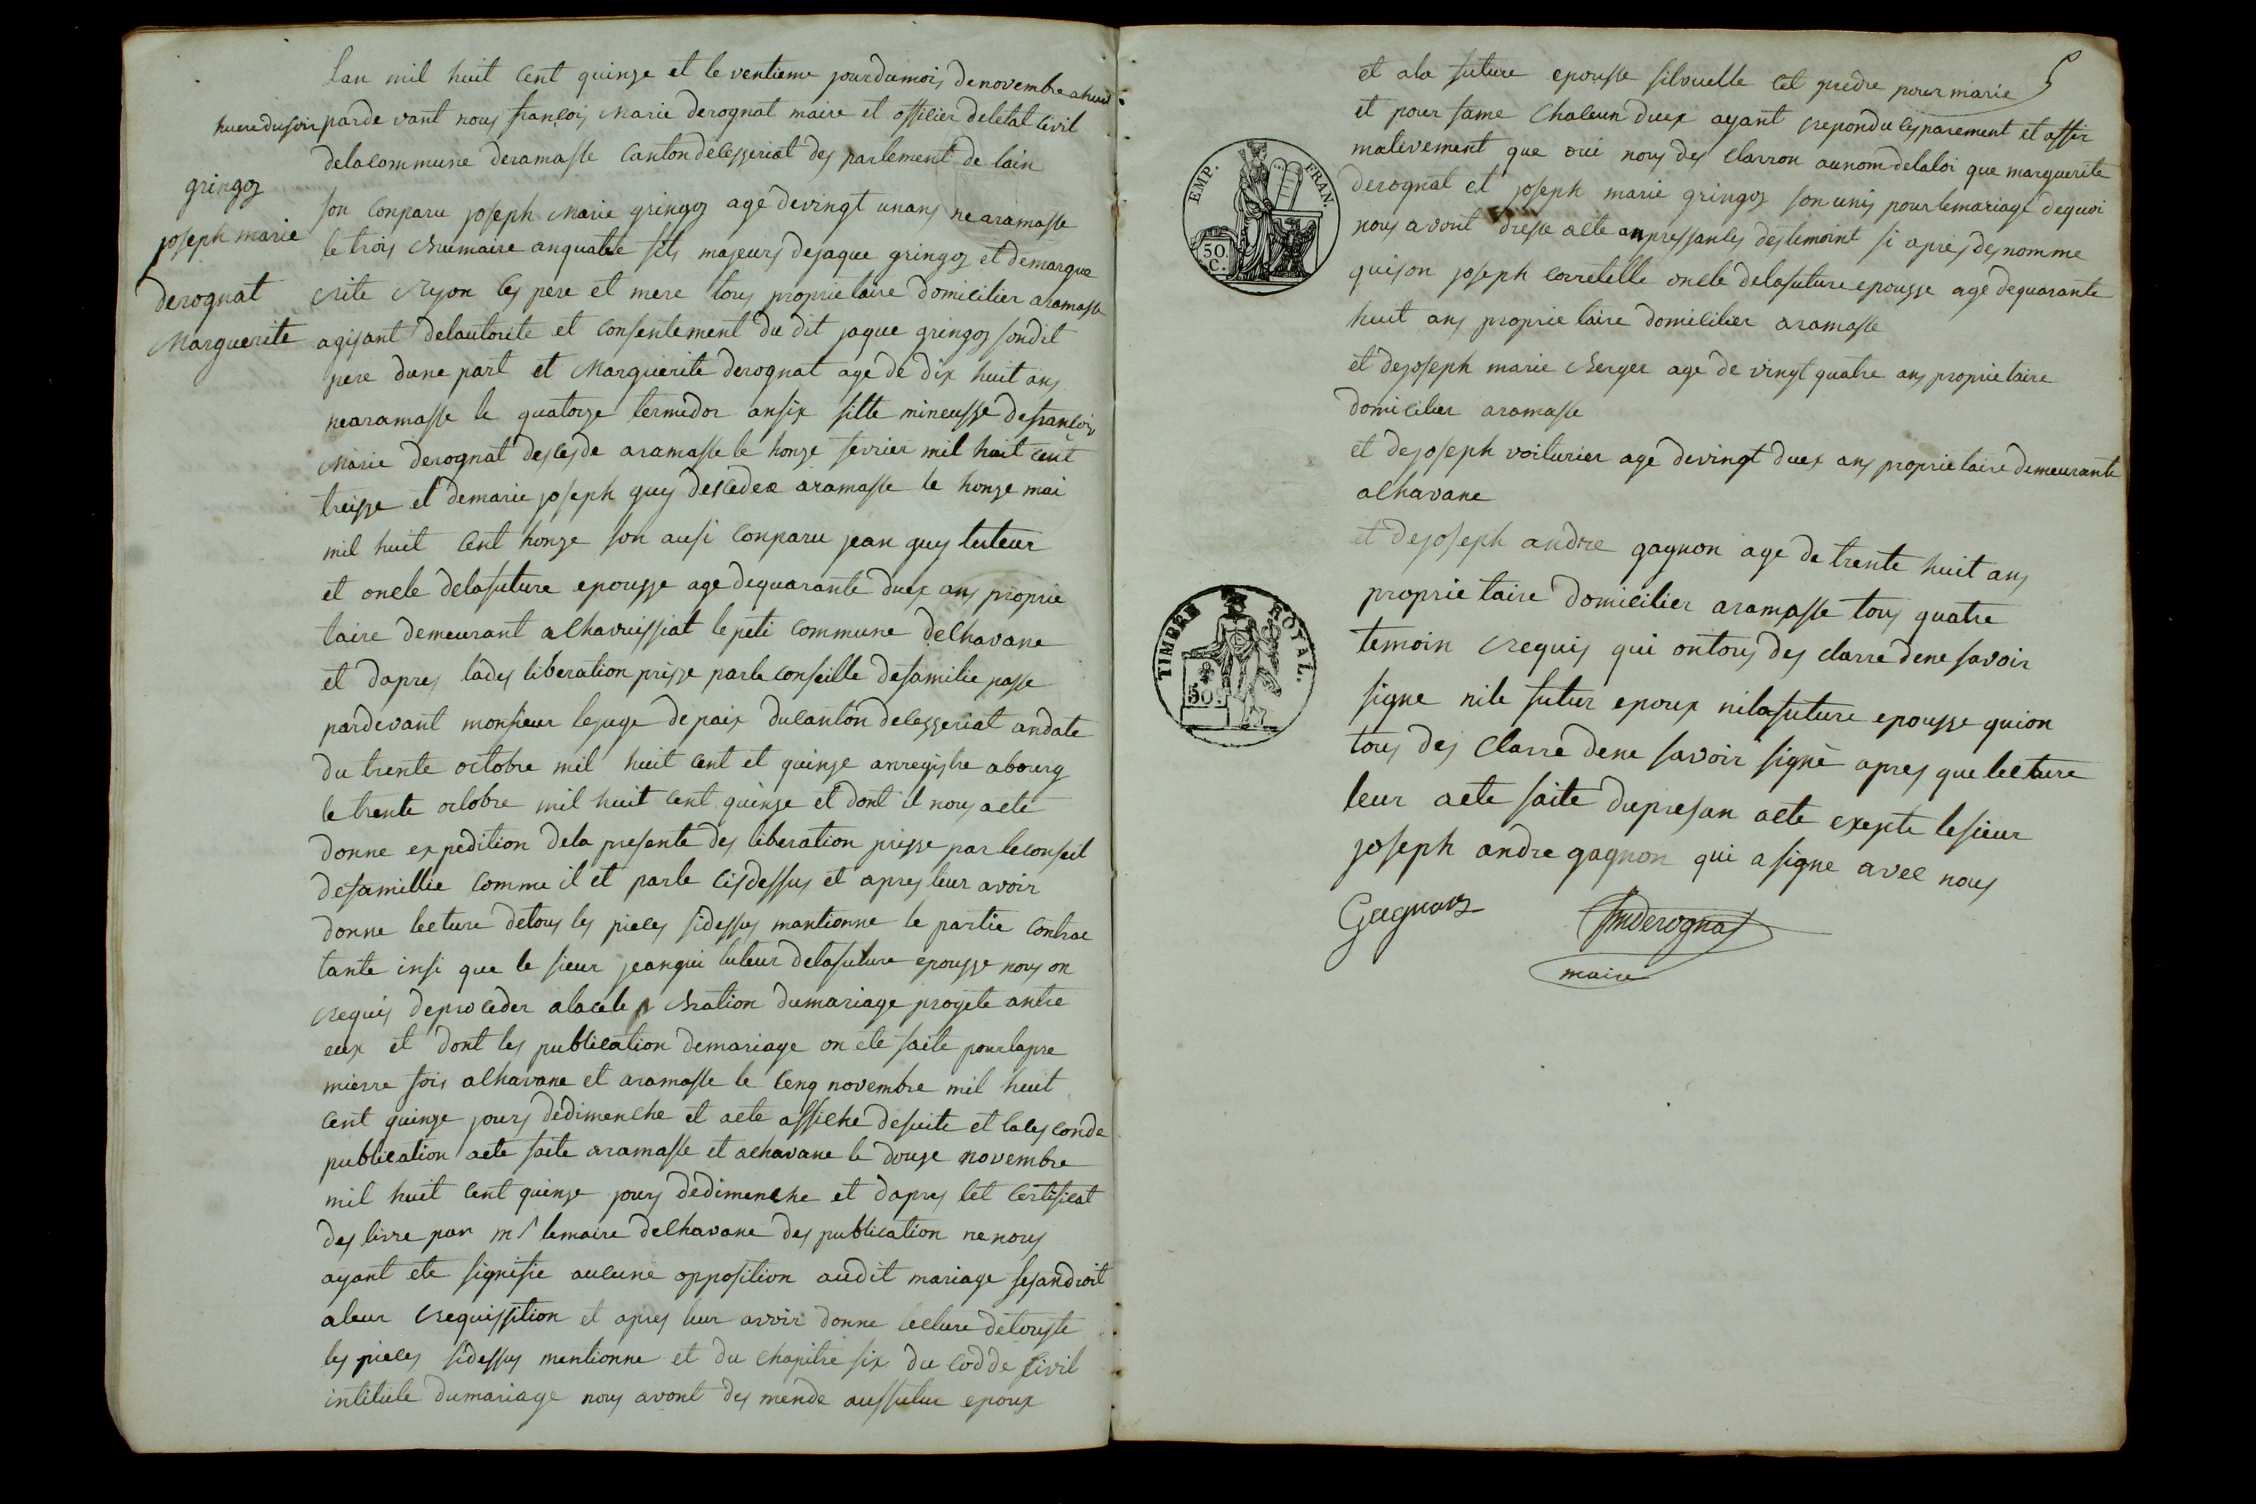 Lan mil huit Cent quinze et le ventieme jour du mois de novembre a huit
huere du soir parde vant nous françois Marie derognat maire et officier de letat Civil
de la Commune de ramasse Canton de Ceszeriat des parlement de lain
gringoz
joseph marie
derognat
Marguerite
son Conparu joseph Marie gringoz age de vingt un ans ne a ramasse
le trois Brumaire an quatre fils majeurs de jaque gringoz et de margue
rite Reyon Ces pere et mere tous proprietaire domicilier a ramasse
agisant de lautorite et Consentement du dit jaque gringoz son dit
pere dune part et Marguerite derognat age de dix huit ans
ne a ramasse le quatorze termidor an six fille mineusse de françois
Marie derognat des Cede a ramasse le honze fevrier mil huit Cent
treisse et de marie joseph guy des Cedee a ramasse le honze mai
mil huit Cent honze son ausi Conparu jean guy tuteur
et oncle de la future epousse age de quarante duex ans proprie
taire demeurant a Chavuissiat le peti Commune de Chavane
et dapres la des liberation prisse par le Conseille de familie passe
pardevant monsieur le juge de paix du Canton de Cesseriat an date
du trente octobre mil huit Cent et quinze anregistre a bourg
le trente octobre mil huit Cent quinze et dont il nous a ete
donne expedition de la presente des liberation prisse par le Conseil
de famillie Comme il et parle Cis dessus et apres leur avoir
donne lecture de tous les pieces si dessus mantionne le partie Contrac
tante insi que le sieur jean gui tuteur de la future epousse nous on
Requis de proceder a la Cele Bration du mariage progete antre
eux et dont les publication de mariage on ete faite pour la pre
mierre fois a Chavane et a ramasse le Cenq novembre mil huit
Cent quinze jours de dimenche et a ete affiche de suite et la des Conde
publication a ete faite a ramasse et a Chavane le douze novembre
mil huit Cent quinze jours de dimenche et dapres let Certificat
des livre par mr le maire de Chavane des publication ne nous
ayant ete signifie aucune opposition audit mariage fesan droit
a leur Requissition et apres leur avoir donne lecture de touste
les pieces si dessus mentionne et du Chapitre six du Codde Sivil
intitule du mariage nous avont des mende aus futur epoux
5
et a la future epousse sil veulle Cet predre pour marie
et pour fame Chaceun duex ayant Repondu Ces parement et affir
mativement que oui nous des Clarron au nom de la loi que marguerite
derognat et joseph marie gringoz son unis pour le mariage de quoi
nous avont dresse acte an pressantes des temoint si apres des nomme
qui son joseph Corretelle oncle de la future epousse age de quarante
huit ans proprie taire domicilier a ramasse
et de joseph marie Berger age de vingt quatre ans proprietaire
domicilier a ramasse
et de joseph voiturier age de vingt duex ans proprietaire demeurante
a Chavane
et de joseph andre gagnon age de trente huit ans
proprie taire domicilier a ramasse tous quatre
temoin Requis qui on tous des clarre de ne savoir
signe ni le futur epoux ni la future epousse qui on
tous des Clarre de ne savoir signé apres que lecture
leur a ete faite du presan acte exepte le sieur
joseph andre gagnon qui a signe avec nous
Gagnon
fm derognat
maire
EMP. FRAN.
50 C.
TIMBRE ROYAL.
50.